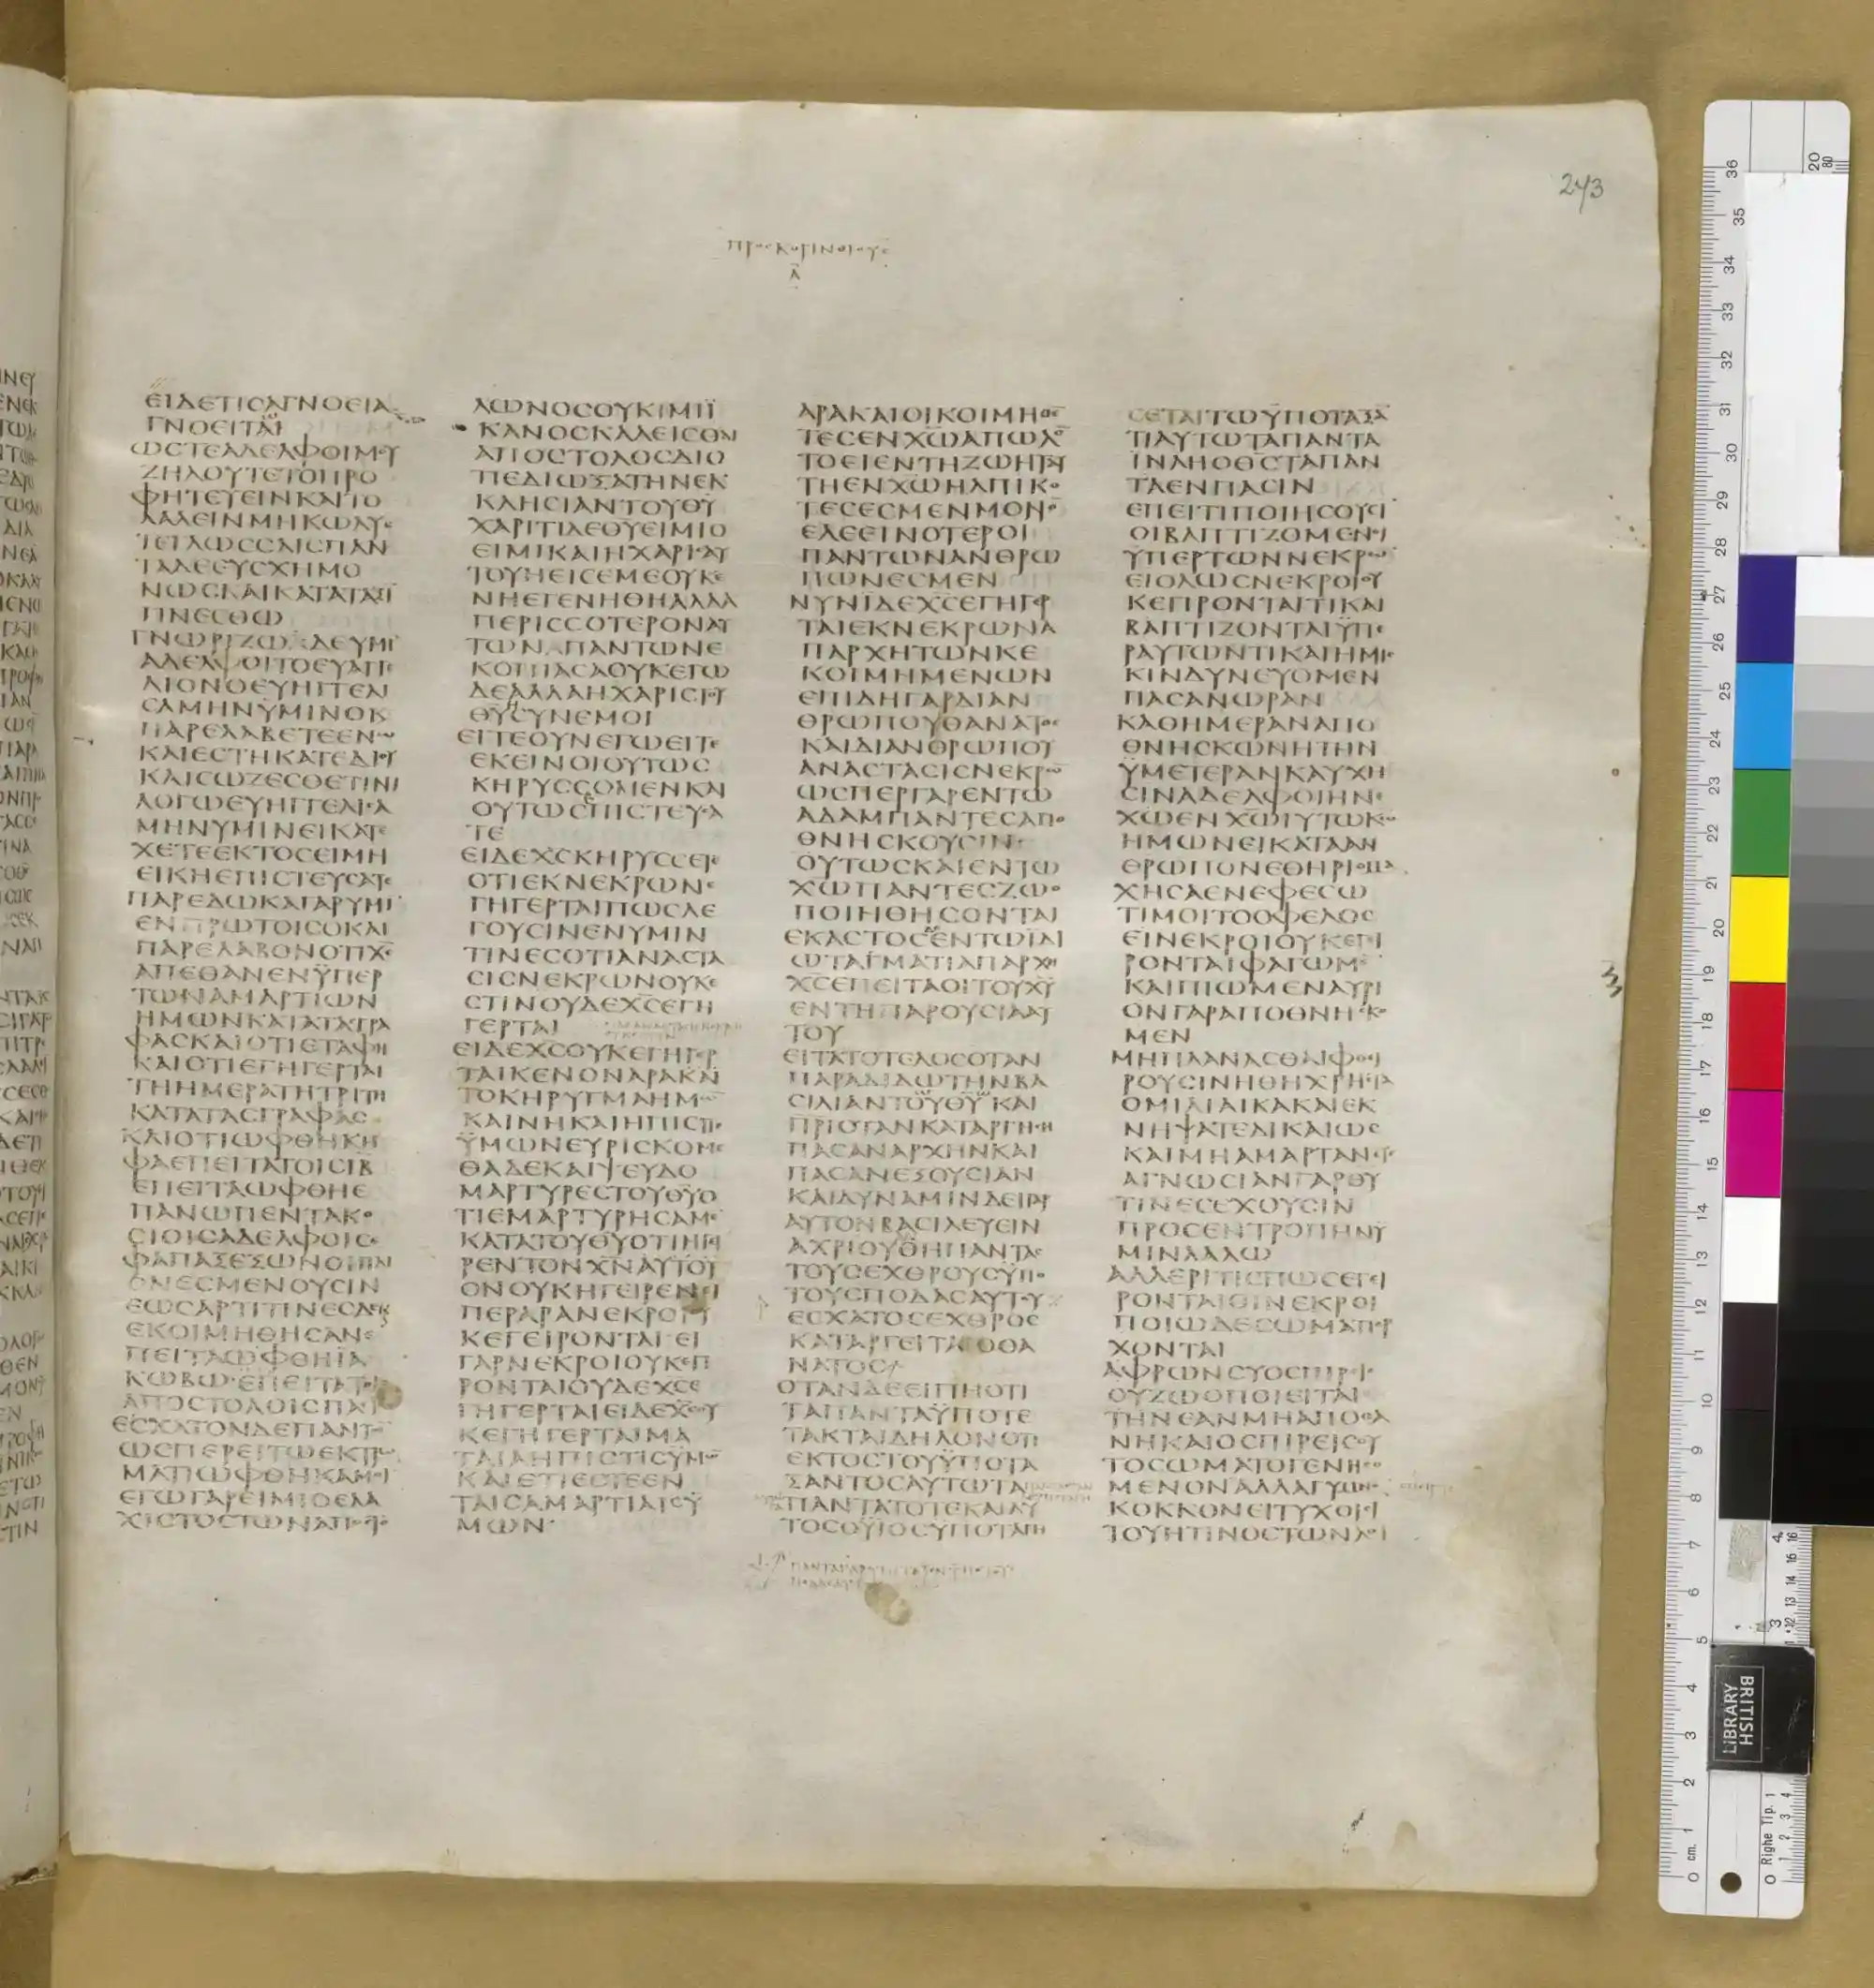 243
ΠΡΟϹΚΟΡΙΝΘΙΟΥϹ
Α
ΕΙΔΕΤΙϹΑΓΝΟΕΙΑ
ΓΝΟΕΙΤΑΙ
ΩϹΤΕΑΔΕΛΦΟΙΜΟΥ
ΖΗΛΟΥΤΕΤΟΠΡΟ
ΦΗΤΕΥΕΙΝΚΑΙΤΟ
ΛΑΛΕΙΝΜΗΚΩΛΥΕ
ΤΕΓΛΩϹϹΑΙϹΠΑΝ
ΤΑΔΕΕΥϹΧΗΜΟ
ΝΩϹΚΑΙΚΑΤΑΤΑΞΙ
ΓΙΝΕϹΘΩ
ΓΝΩΡΙΖΩΔΕΥΜΙ
ΑΔΕΛΦΟΙΤΟΕΥΑΓΓΕ
ΛΙΟΝΟΕΥΗΓΓΕΛΙ
ϹΑΜΗΝΥΜΙΝΟΚ
ΠΑΡΕΛΑΒΕΤΕΕΝΩ
ΚΑΙΕϹΤΗΚΑΤΕΔΙΟΥ
ΚΑΙϹΩΖΕϹΘΕΤΙΝΙ
ΛΟΓΩΕΥΗΓΓΕΛΙϹΑ
ΜΗΝΥΜΙΝΕΙΚΑΤΕ
ΧΕΤΕΕΚΤΟϹΕΙΜΗ
ΕΙΚΗΕΠΙϹΤΕΥϹΑΤΕ
ΠΑΡΕΔΩΚΑΓΑΡΥΜΙ
ΕΝΠΡΩΤΟΙϹΟΚΑΙ
ΠΑΡΕΛΑΒΟΝΟΤΙΧϹ
ΑΠΕΘΑΝΕΝΫΠΕΡ
ΤΩΝΑΜΑΡΤΙΩΝ
ΗΜΩΝΚΑΤΑΤΑϹΓΡΑ
ΦΑϹΚΑΙΟΤΙΕΤΑΦΗ
ΚΑΙΟΤΙΕΓΗΓΕΡΤΑΙ
ΤΗΗΜΕΡΑΤΗΤΡΙΤΗ
ΚΑΤΑΤΑϹΓΡΑΦΑϹ
ΚΑΙΟΤΙΩΦΘΗΚΗ
ΦΑΕΠΕΙΤΑΤΟΙϹΙΒ
ΕΠΕΙΤΑΩΦΘΗΕ
ΠΑΝΩΠΕΝΤΑΚΟ
ϹΙΟΙϹΑΔΕΛΦΟΙϹΕ
ΦΑΠΑΞΕΞΩΝΟΙΠΛΙ
ΟΝΕϹΜΕΝΟΥϹΙΝ
ΕΩϹΑΡΤΙΤΙΝΕϹΔΕ
ΕΚΟΙΜΗΘΗϹΑΝΕ
ΠΕΙΤΑΩΦΘΗΪΑ
ΚΩΒΩΕΠΕΙΤΑΤΟΙϹ
ΑΠΟϹΤΟΛΟΙϹΠΑϹΙ
ΕϹΧΑΤΟΝΔΕΠΑΝΤΩ
ΩϹΠΕΡΕΙΤΩΕΚΤΡΩ
ΜΑΤΙΩΦΘΗΚΑΜΟΙ
ΕΓΩΓΑΡΕΙΜΙΟΕΛΑ
ΧΙϹΤΟϹΤΩΝΑΠΟϹΤΟ
ΛΩΝΟϹΟΥΚΙΜΙΪ
ΚΑΝΟϹΚΑΛΕΙϹΘΑΙ
ΑΠΟϹΤΟΛΟϹΔΙΟ
ΤΙΕΔΙΩΞΑΤΗΝΕΚ
ΚΛΗϹΙΑΝΤΟΥΘΥ
ΧΑΡΙΤΙΔΕΘΥΕΙΜΙΟ
ΕΙΜΙΚΑΙΗΧΑΡΙϹΑΥ
ΤΟΥΗΕΙϹΕΜΕΟΥΚΕ
ΝΗΕΓΕΝΗΘΗΑΛΛΑ
ΠΕΡΙϹϹΟΤΕΡΟΝΑΥ
ΤΩΝΠΑΝΤΩΝΕ
ΚΟΠΙΑϹΑΟΥΚΕΓΩ
ΔΕΑΛΛΑΗΧΑΡΙϹΤΟΥ
ΘΥϹΥΝΕΜΟΙ
ΕΙΤΕΟΥΝΕΓΩΕΙΤΕ
ΕΚΕΙΝΟΙΟΥΤΩϹ
ΚΗΡΥϹϹΟΜΕΝΚΑΙ
ΟΥΤΩϹΕΠΙϹΤΕΥϹΑ
ΤΕ
ΕΙΔΕΧϹΚΗΡΥϹϹΕΤΑΙ
ΟΤΙΕΚΝΕΚΡΩΝΕ
ΓΗΓΕΡΤΑΙΠΩϹΛΕ
ΓΟΥϹΙΝΕΝΥΜΙΝ
ΤΙΝΕϹΟΤΙΑΝΑϹΤΑ
ϹΙϹΝΕΚΡΩΝΟΥΚΕ
ϹΤΙΝΟΥΔΕΧϹΕΓΗ
ΓΕΡΤΑΙ
ΕΙΔΕΧϹΟΥΚΕΓΗΓΕΡ
ΤΑΙΚΕΝΟΝΑΡΑΚΑΙ
ΤΟΚΗΡΥΓΜΑΗΜΩ
ΚΑΙΝΗΚΑΙΗΠΙϹΤΙϹ
ΫΜΩΝΕΥΡΙϹΚΟΜΕ
ΘΑΔΕΚΑΙΨΕΥΔΟ
ΜΑΡΤΥΡΕϹΤΟΥΘΥΟ
ΤΙΕΜΑΡΤΥΡΗϹΑΜΕ
ΚΑΤΑΤΟΥΘΥΟΤΙΗΓΙ
ΡΕΝΤΟΝΧΝΑΥΤΟΥ
ΟΝΟΥΚΗΓΕΙΡΕΝΕΙ
ΠΕΡΑΡΑΝΕΚΡΟΙΟΥ
ΚΕΓΕΙΡΟΝΤΑΙΕΙ
ΓΑΡΝΕΚΡΟΙΟΥΚΕΓΙ
ΡΟΝΤΑΙΟΥΔΕΧϹΕ
ΓΗΓΕΡΤΑΙΕΙΔΕΧϹΟΥ
ΚΕΓΗΓΕΡΤΑΙΜΑ
ΤΑΙΑΗΠΙϹΤΙϹΥΜΩ
ΚΑΙΕΤΙΕϹΤΕΕΝ
ΤΑΙϹΑΜΑΡΤΙΑΙϹΫ
ΜΩΝ
ΑΡΑΚΑΙΟΙΚΟΙΜΗΘΕ
ΤΕϹΕΝΧΩΑΠΩΛΟ
ΤΟΕΙΕΝΤΗΖΩΗΤΑΥ
ΤΗΕΝΧΩΗΛΠΙΚΟ
ΤΕϹΕϹΜΕΝΜΟΝΟ
ΕΛΕΕΙΝΟΤΕΡΟΙ
ΠΑΝΤΩΝΑΝΘΡΩ
ΠΩΝΕϹΜΕΝ
ΝΥΝΙΔΕΧϹΕΓΗΓΕΡ
ΤΑΙΕΚΝΕΚΡΩΝΑ
ΠΑΡΧΗΤΩΝΚΕ
ΚΟΙΜΗΜΕΝΩΝ
ΕΠΙΔΗΓΑΡΔΙΑΝ
ΘΡΩΠΟΥΘΑΝΑΤΟϹ
ΚΑΙΔΙΑΝΘΡΩΠΟΥ
ΑΝΑϹΤΑϹΙϹΝΕΚΡΩ
ΩϹΠΕΡΓΑΡΕΝΤΩ
ΑΔΑΜΠΑΝΤΕϹΑΠΟ
ΘΝΗϹΚΟΥϹΙΝ
ΟΥΤΩϹΚΑΙΕΝΤΩ
ΧΩΠΑΝΤΕϹΖΩΟ
ΠΟΙΗΘΗϹΟΝΤΑΙ
ΕΚΑϹΤΟϹΕΝΤΩΪΔΙ
ΩΤΑΓΜΑΤΙΑΠΑΡΧΗ
ΧϹΕΠΕΙΤΑΟΙΤΟΥΧΥ
ΕΝΤΗΠΑΡΟΥϹΙΑΑΥ
ΤΟΥ
ΕΙΤΑΤΟΤΕΛΟϹΟΤΑΝ
ΠΑΡΑΔΙΔΩΤΗΝΒΑ
ϹΙΛΙΑΝΤΩΘΩΚΑΙ
ΠΡΙΟΤΑΝΚΑΤΑΡΓΗϹΗ
ΠΑϹΑΝΑΡΧΗΝΚΑΙ
ΠΑϹΑΝΕΞΟΥϹΙΑΝ
ΚΑΙΔΥΝΑΜΙΝΔΕΙΓΑΡ
ΑΥΤΟΝΒΑϹΙΛΕΥΕΙΝ
ΑΧΡΙΟΥΘΗΠΑΝΤΑϹ
ΤΟΥϹΕΧΘΡΟΥϹΫΠΟ
ΤΟΥϹΠΟΔΑϹΑΥΤΟΥ
ΕϹΧΑΤΟϹΕΧΘΡΟϹ
ΚΑΤΑΡΓΕΙΤΑΙΟΘΑ
ΝΑΤΟϹ
ΟΤΑΝΔΕΕΙΠΗΟΤΙ
ΤΑΠΑΝΤΑΫΠΟΤΕ
ΤΑΚΤΑΙΔΗΛΟΝΟΤΙ
ΕΚΤΟϹΤΟΥΫΠΟΤΑ
ΞΑΝΤΟϹΑΥΤΩΤΑ
ΠΑΝΤΑΤΟΤΕΚΑΙΑΥ
ΤΟϹΟΫΙΟϹΥΠΟΤΑΓΗ
ϹΕΤΑΙΤΩΫΠΟΤΑΞΑ
ΤΙΑΥΤΩΤΑΠΑΝΤΑ
ΙΝΑΗΟΘϹΤΑΠΑΝ
ΤΑΕΝΠΑϹΙΝ
ΕΠΕΙΤΙΠΟΙΗϹΟΥϹΙ
ΟΙΒΑΠΤΙΖΟΜΕΝΟΙ
ΫΠΕΡΤΩΝΝΕΚΡΩ
ΕΙΟΛΩϹΝΕΚΡΟΙΟΥ
ΚΕΓΙΡΟΝΤΑΙΤΙΚΑΙ
ΒΑΠΤΙΖΟΝΤΑΙΫΠΕ
ΡΑΥΤΩΝΤΙΚΑΙΗΜΙϹ
ΚΙΝΔΥΝΕΥΟΜΕΝ
ΠΑϹΑΝΩΡΑΝ
ΚΑΘΗΜΕΡΑΝΑΠΟ
ΘΝΗϹΚΩΝΗΤΗΝ
ΫΜΕΤΕΡΑΝΚΑΥΧΗ
ϹΙΝΑΔΕΛΦΟΙΗΝΕ
ΧΩΕΝΧΩΙΥΤΩΚΩ
ΗΜΩΝΕΙΚΑΤΑΑΝ
ΘΡΩΠΟΝΕΘΗΡΙΟΜΑ
ΧΗϹΑΕΝΕΦΕϹΩ
ΤΙΜΟΙΤΟΟΦΕΛΟϹ
ΕΙΝΕΚΡΟΙΟΥΚΕΓΙ
ΡΟΝΤΑΙΦΑΓΩΜΕ
ΚΑΙΠΙΩΜΕΝΑΥΡΙ
ΟΝΓΑΡΑΠΟΘΝΗϹΚΟ
ΜΕΝ
ΜΗΠΛΑΝΑϹΘΑΙΦΘΙ
ΡΟΥϹΙΝΗΘΗΧΡΗϹΤΑ
ΟΜΙΛΙΑΙΚΑΚΑΙΕΚ
ΝΗΨΑΤΕΔΙΚΑΙΩϹ
ΚΑΙΜΗΑΜΑΡΤΑΝΕΤΕ
ΑΓΝΩϹΙΑΝΓΑΡΘΥ
ΤΙΝΕϹΕΧΟΥϹΙΝ
ΠΡΟϹΕΝΤΡΟΠΗΝΫ
ΜΙΝΛΑΛΩ
ΑΛΛΕΡΙΤΙϹΠΩϹΕΓΙ
ΡΟΝΤΑΙΟΙΝΕΚΡΟΙ
ΠΟΙΩΔΕϹΩΜΑΤΙΕΡ
ΧΟΝΤΑΙ
ΑΦΡΩΝϹΥΟϹΠΙΡΕΙϹ
ΟΥΖΩΟΠΟΙΕΙΤΑΙ
ΤΗΝΕΑΝΜΗΑΠΟΘΑ
ΝΗΚΑΙΟϹΠΙΡΕΙϹΟΥ
ΤΟϹΩΜΑΤΟΓΕΝΗϹΟ
ΜΕΝΟΝΑΛΛΑΓΥΜΝΟ
ΚΟΚΚΟΝΕΙΤΥΧΟΙϹΙ
ΤΟΥΗΤΙΝΟϹΤΩΝΛΟΙ
BRITISH
LIBRARY